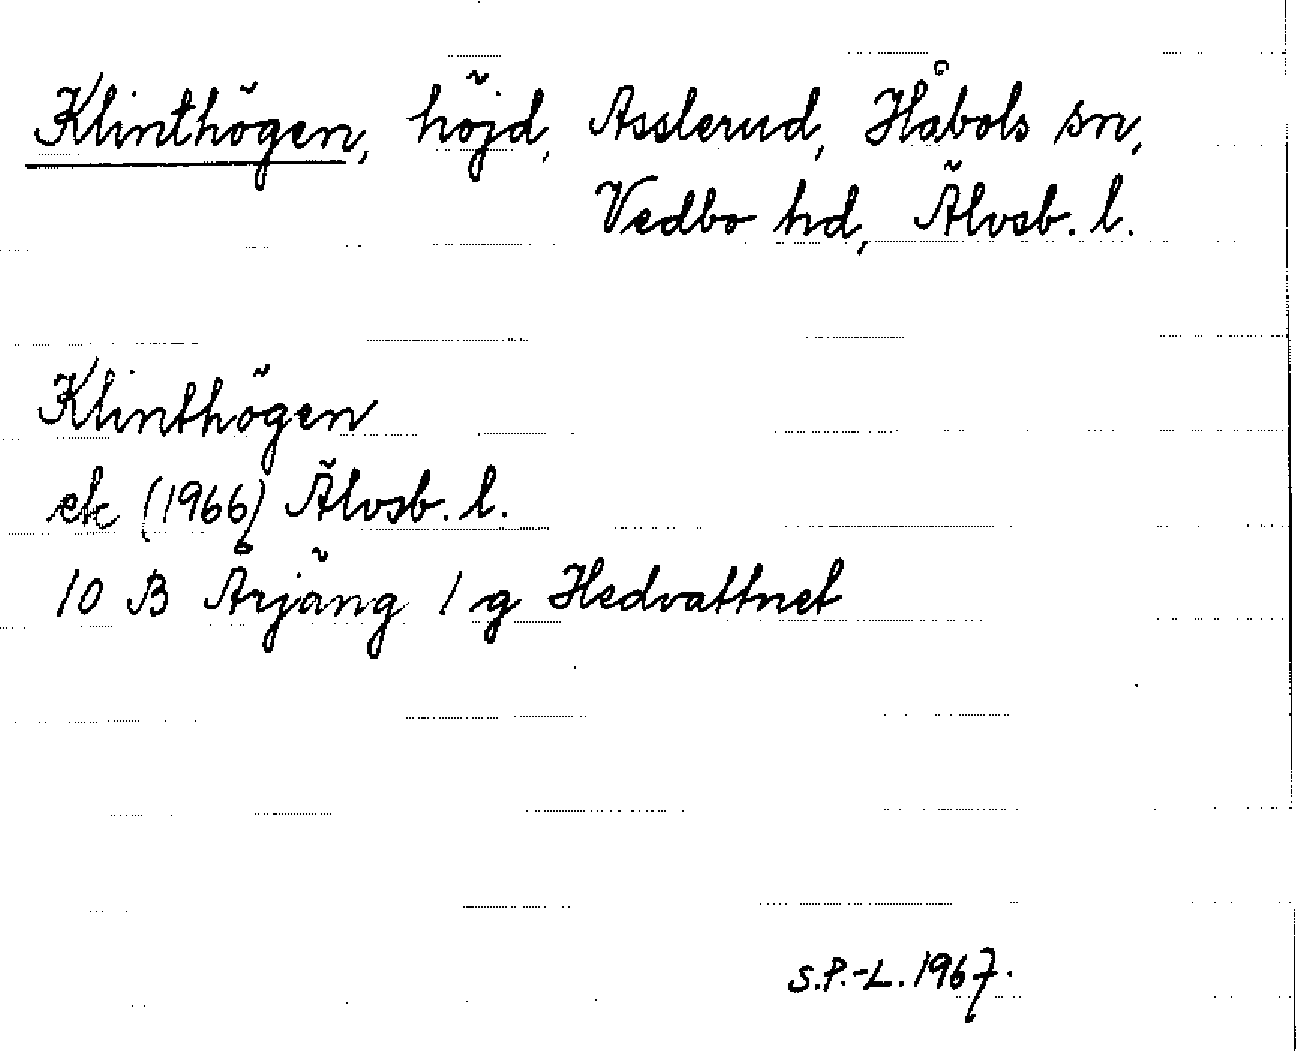 Klinthögen, höjd, Asslerud, Håbols sn,
Vedbo hd, Älvsb. l.
Klinthögen
ek (1966) Älvsb. l.
10 B Årjäng 1 g Hedvattnet
S.P.-L. 1967.